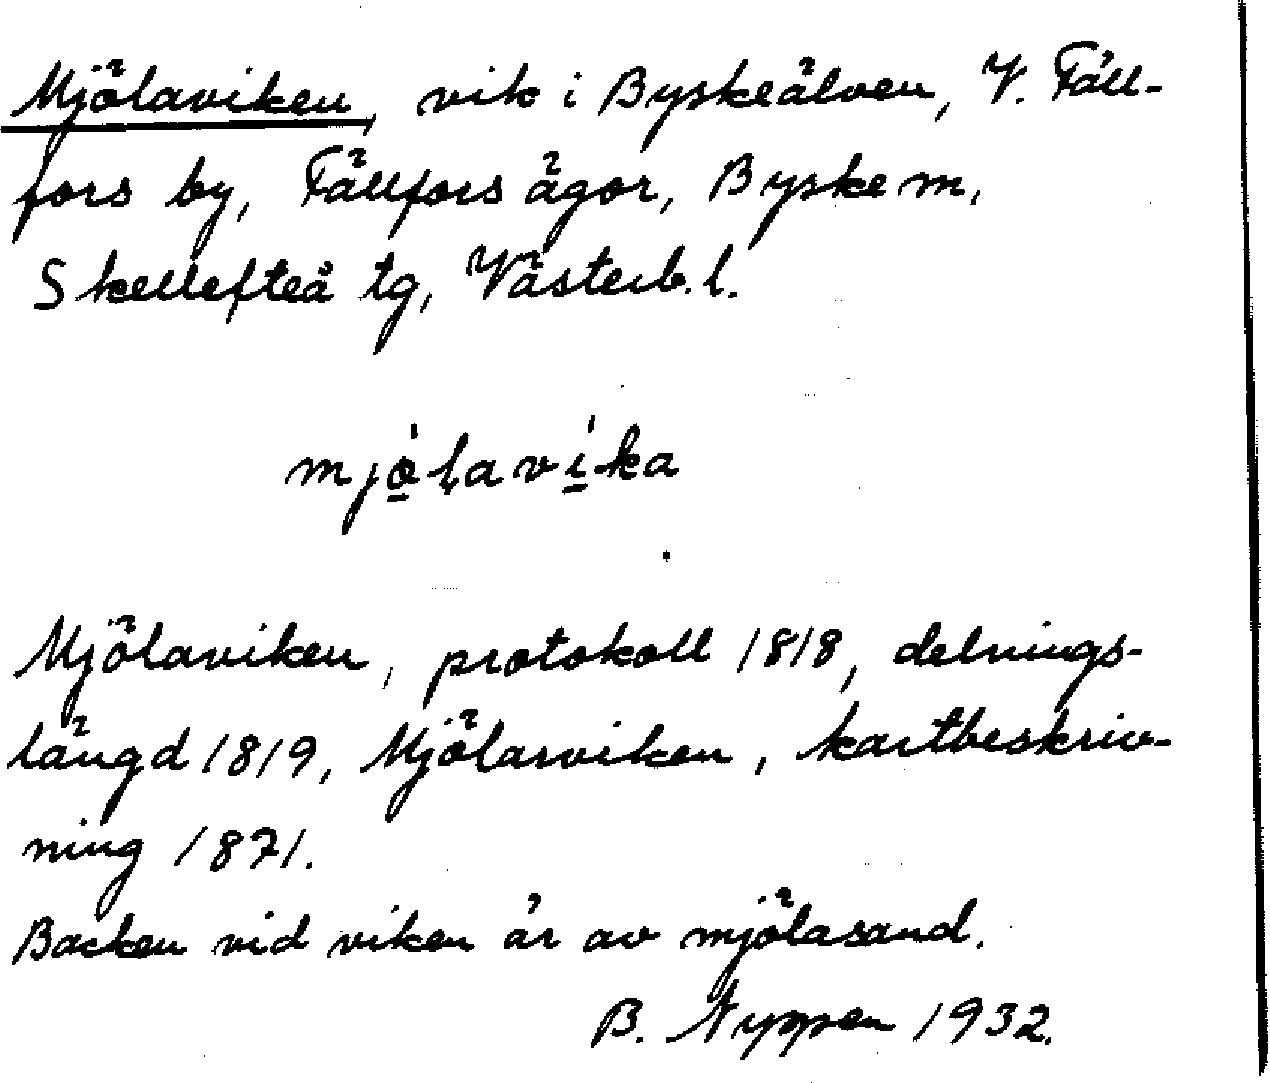 Mjölaviken, vik i Byskeälven, V. Fäll-
fors by, Fällfors ägor, Byske m,
Skellefteå tg, Västerb. l.
mjö̲́ḷaví̲ka
Mjölaviken, protokoll 1818, delnings-
längd 1819, Mjölarviken, kartbeskriv-
ning 1871.
Backen vid viken är av mjölasand.
B. Nyppen 1932.